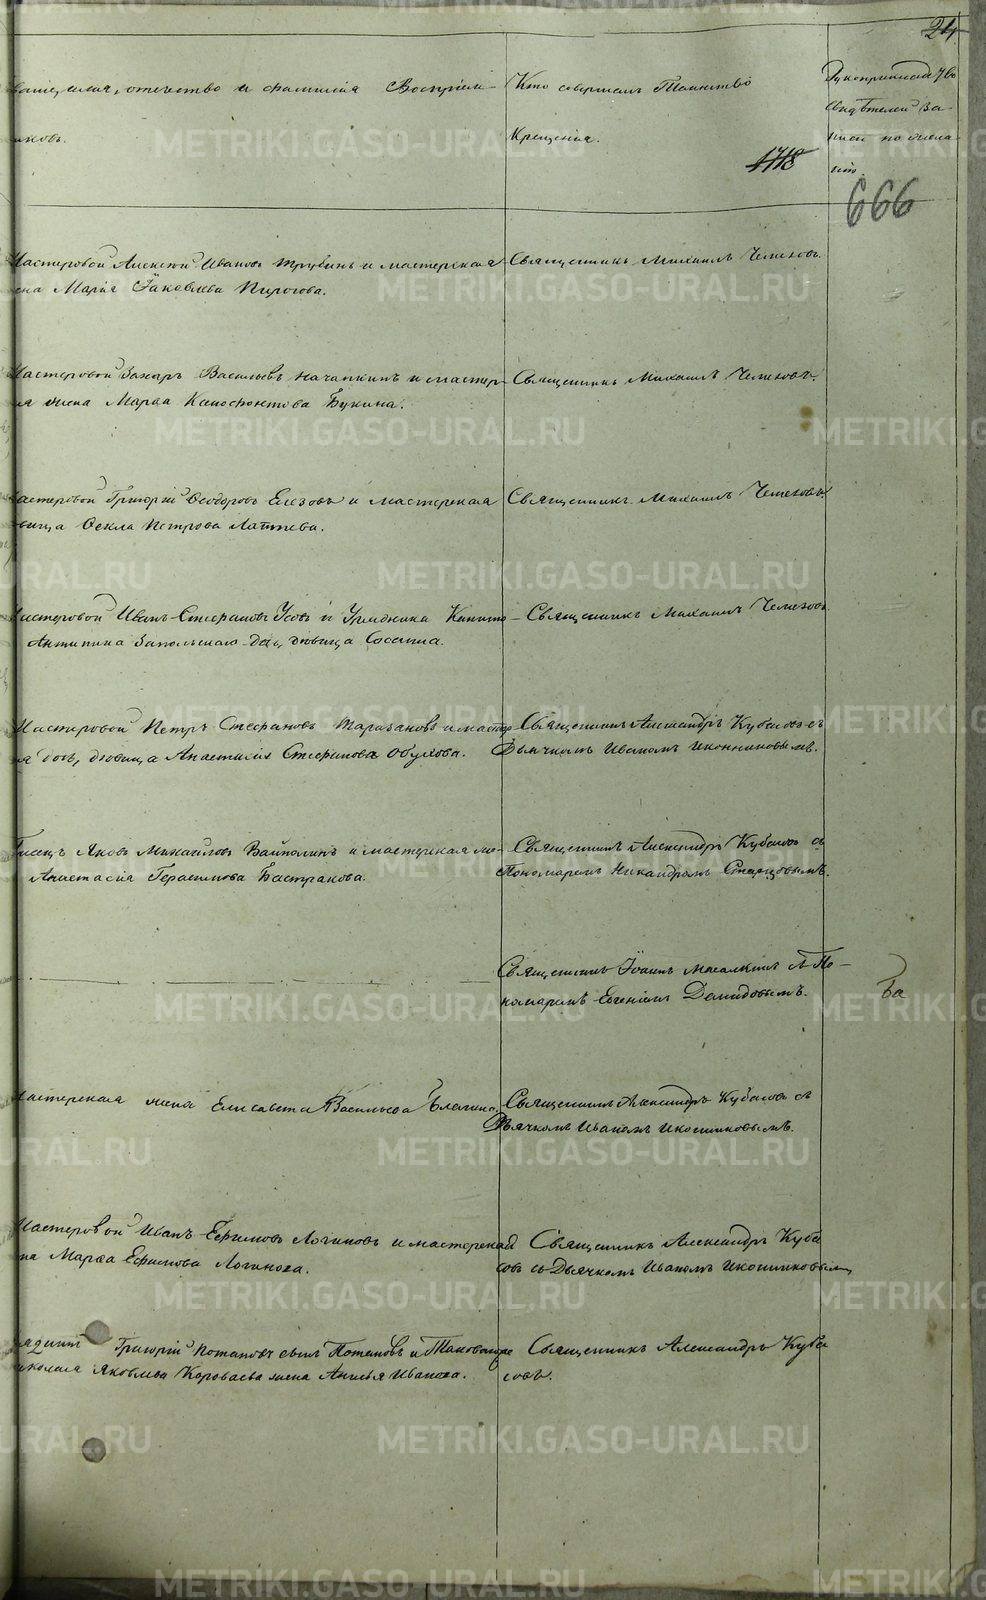 24
Званіе, имя, отчество и фамилія Воспріем-
никовъ.
Кто совершалъ Таинство
Крещенія.
Рукоприкладство
свидѣтелей за-
писи по жела-
нію.
1718
666
Мастеровой Алексѣй Ивановъ Трубинъ и мастерская
жена Марія Іаковлева Пирогова.
Священникъ Михаилъ Челеховъ.
Мастеровой Захаръ Васильевъ Начапкинъ и мастер
жена Марѳа Ксенофонтова Букина.
Священникъ Михаилъ Челеховъ.
Мастеровой Григорій Ѳеодоровъ Елезовъ и мастерская
дѣвица Ѳекла Петрова Лаптева.
Священникъ Михаилъ Челеховъ
Мастеровой Иванъ Стефановъ Усовъ и Урядника
Антипина Запольскаго дочь дѣвица
Священникъ Михаилъ Челеховъ
Мастеровой Петръ Стефановъ Таракановъ и мастер
дочь, дѣвица Анастасія Стефанова Обухова.
Священникъ Александръ Кубасовъ съ
Дьячкомъ Иваномъ Иконниковымъ.
Писецъ Яковъ Михайловъ и мастерская же-
Анастасія Герасимова Бастракова.
Священникъ Александръ Кубасовъ съ
Пономаремъ Никандромъ Старцовымъ.
Священникъ Іоаннъ съ По-
номаремъ Евгеніемъ Демидовымъ.
Мастерская жена Елисавета Васильева
Священникъ Александръ Кубасовъ съ
Дьячкомъ Иваномъ Иконниковымъ.
Мастеровой Иванъ Ефимовъ Логиновъ и мастерская
Марѳа Ефимова Логинова.
Священникъ Александръ Куба
совъ съ Дьячкомъ Иваномъ Иконниковымъ
Григорій Потаповъ сынъ Потаповъ и
Яковлева Короваева жена Анна Иванова.
Священникъ Александръ Куба
совъ.
METRIKI.GASO-URAL.RU